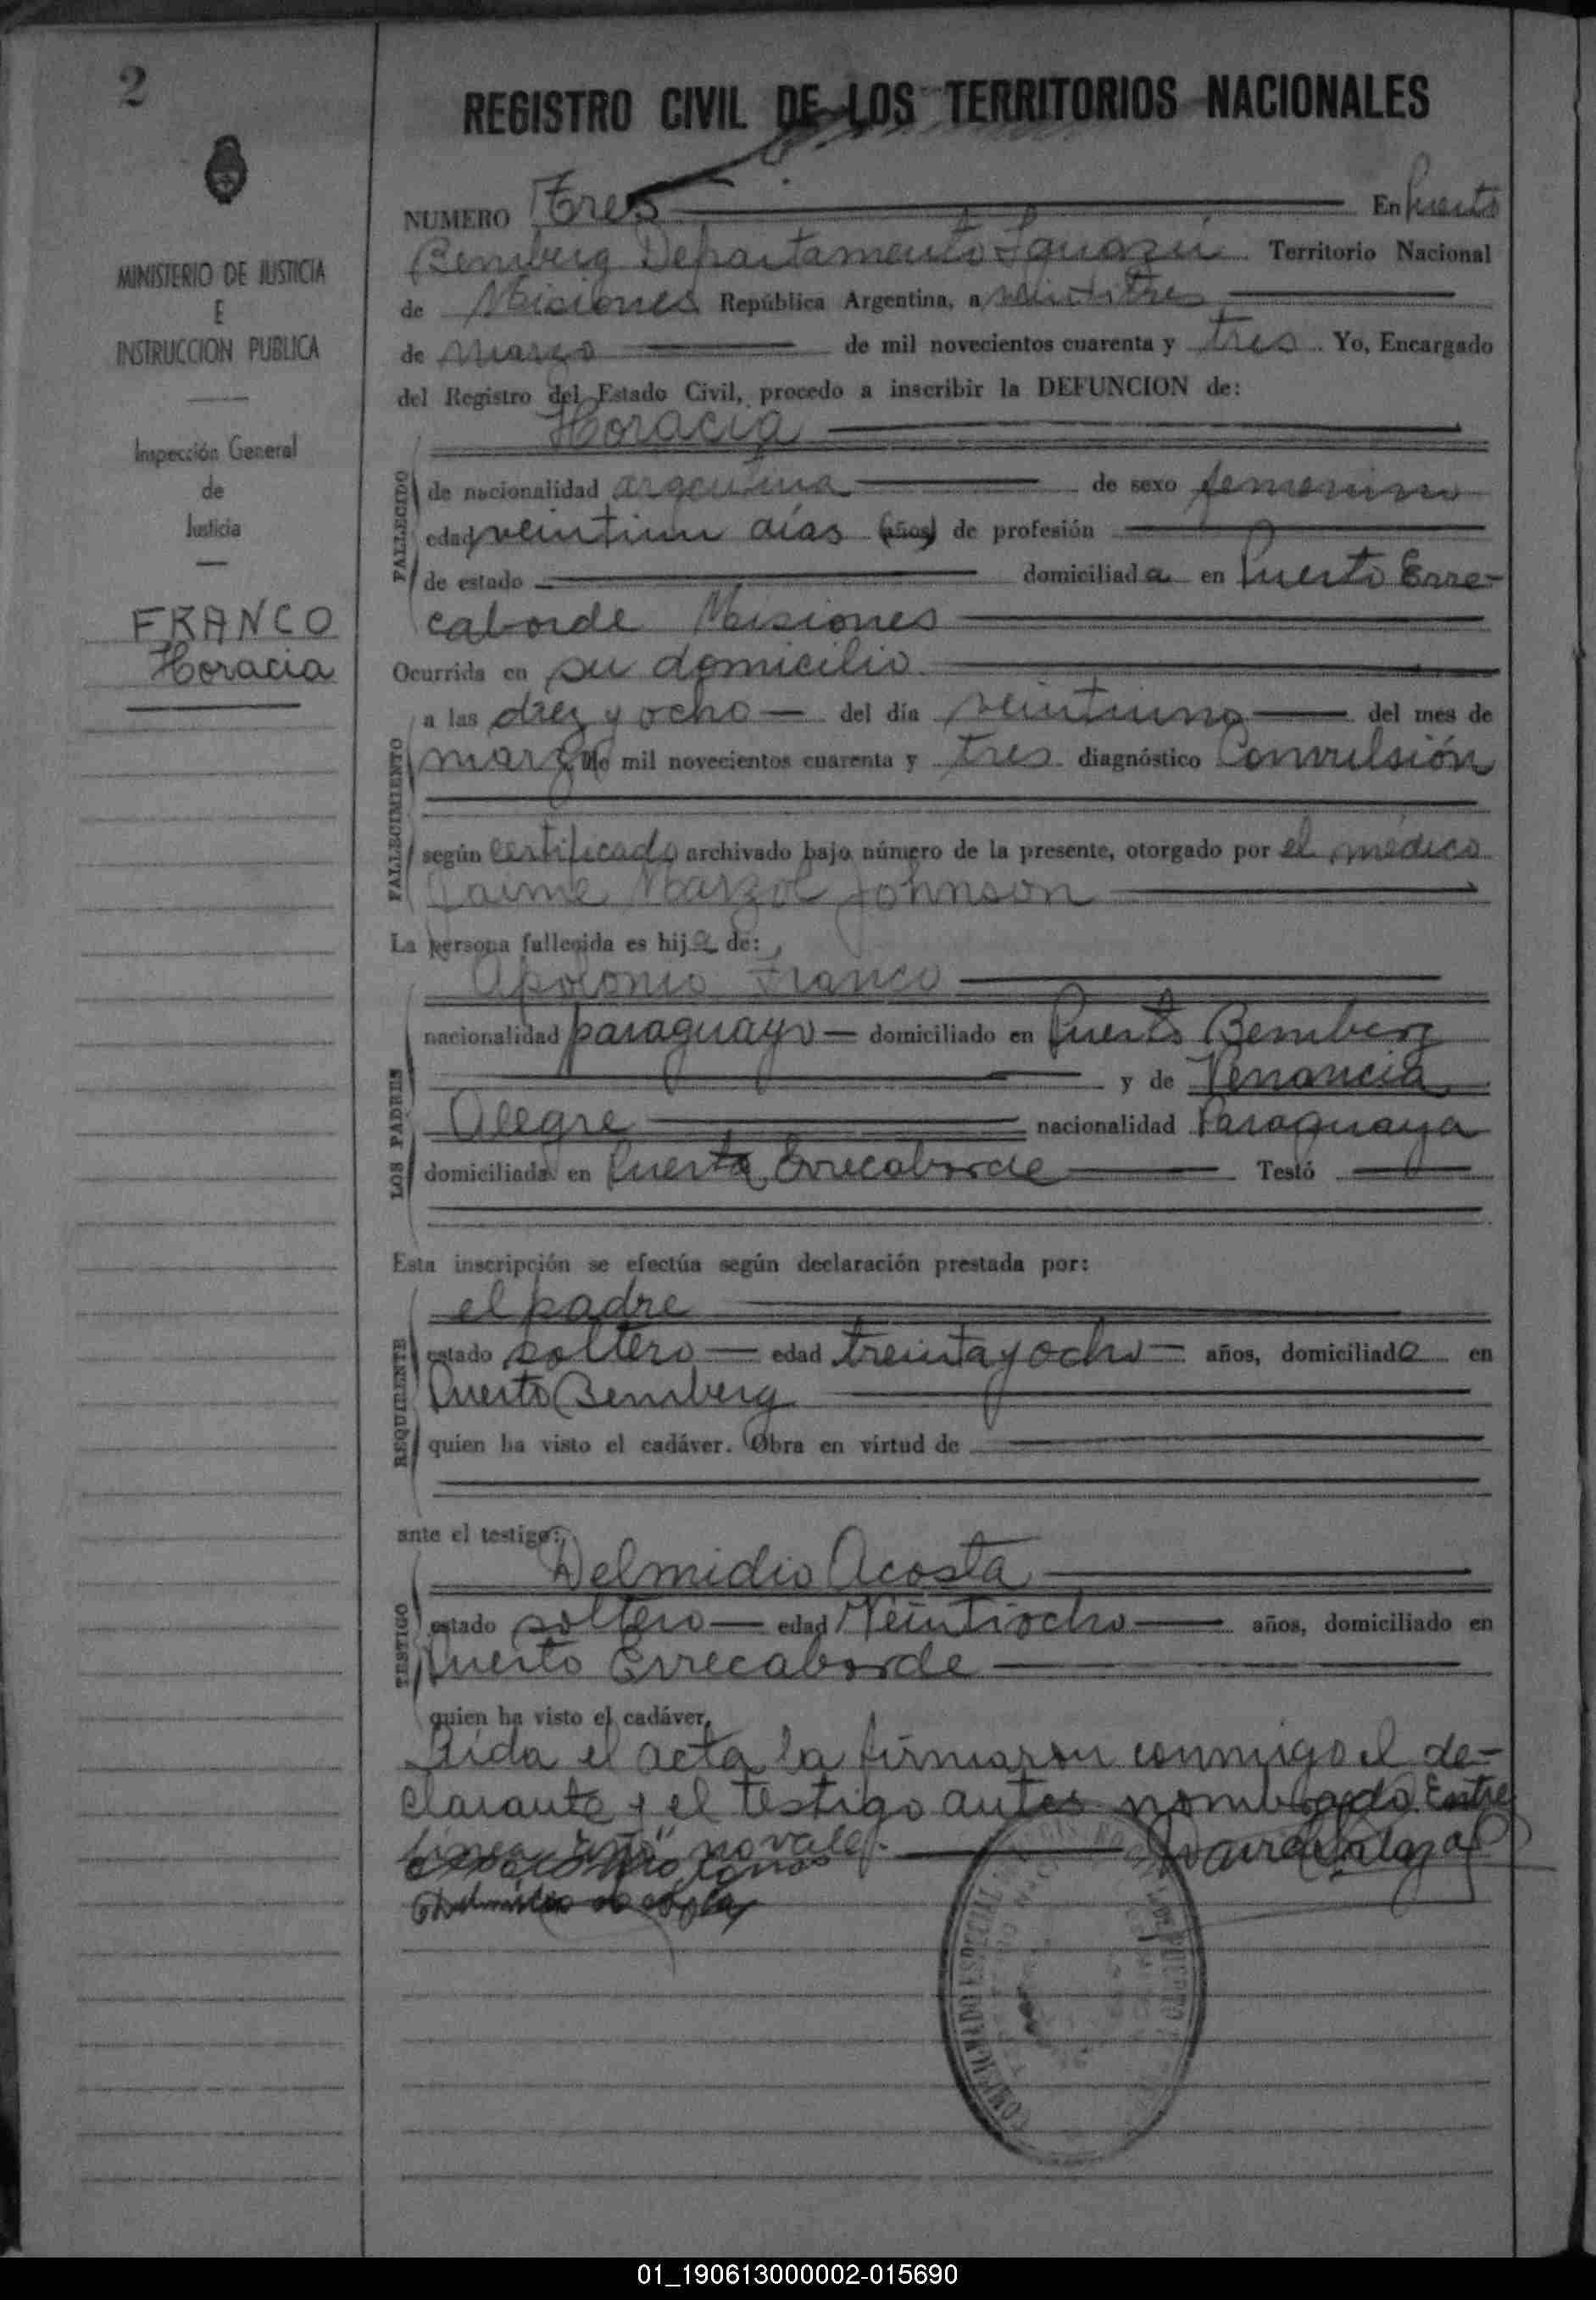 2
REGISTRO CIVIL DE LOS TERRITORIOS NACIONALES
MINISTERIO DE JUSTICIA
E
INSTRUCCION PUBLICA
Inspección General
de
Justicia
FRANCO
Horacia
NUMERO Tres En Puerto
Bemberg Departamento Iguazú Territorio Nacional
de Misiones República Argentina, a veintitres
de marzo de mil novecientos cuarenta y tres Yo, Encargado
del Registro del Estado Civil, procedo a inscribir la DEFUNCION de:
Horacia
FALLECIDO
de nacionalidad argentina de sexo femenino
edad veintiun días (años) de profesión
de estado domiciliada en Puerto Erre-
caborde Misiones
Ocurrida en su domicilio
FALLECIMIENTO
a las diez y ocho del día veintiuno del mes de
marzo de mil novecientos cuarenta y tres diagnóstico Convulsión
según certificado archivado bajo número de la presente, otorgado por el médico
Jaime Marzol Johnson
La persona fallecida es hija de:
Apolonio Franco
LOS PADRES
nacionalidad paraguayo domiciliado en Puerto Bemberg
y de Venancia
Alegre nacionalidad Paraguaya
domiciliada en Puerto Errecaborde Testó
Esta inscripción se efectúa según declaración prestada por:
el padre
REQUIRENTE
estado soltero edad treinta y ocho años, domiciliado en
Puerto Bemberg
quien ha visto el cadáver. Obra en virtud de
ante el testigo:
Delmidio Acosta
TESTIGO
estado soltero edad Veintiocho años, domiciliado en
Puerto Errecaborde
quien ha visto el cadáver.
Leida el acta la firmaron conmigo el de-
clarante y el testigo antes nombrado Entre
línea no vale.
COMISARIADO ESPECIAL
01_190613000002-015690